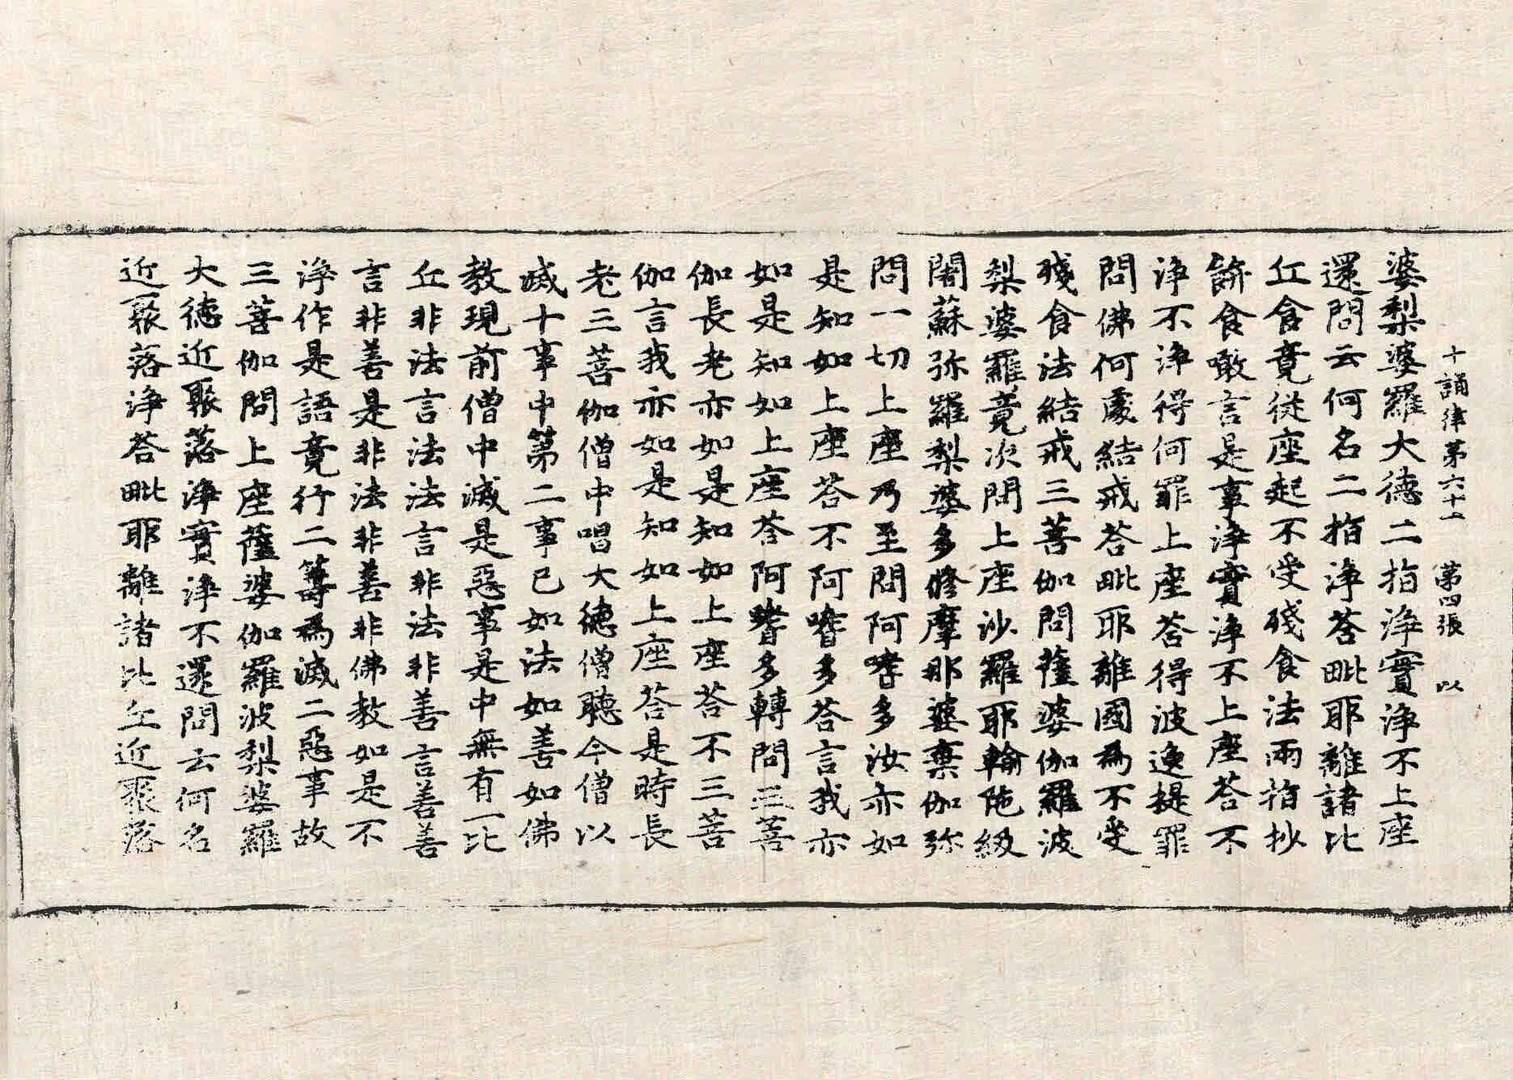 十誦律第六十一 第四張 以
婆梨婆羅大德二指淨實淨不上座
還問云何名二指淨荅毗耶離諸比
丘食竟從座起不受殘食法兩指抄
餅食噉言是事淨實淨不上座荅不
淨不淨得何罪上座荅得波逸提罪
問佛何處結戒荅毗耶離國為不受
殘食法結戒三菩伽問薩婆伽羅波
梨婆羅竟次問上座沙羅耶輸陁級
闍蘇弥羅梨婆多修摩那婆棄伽弥
問一切上座乃至問阿嗜多汝亦如
是知如上座荅不阿嗜多荅言我亦
如是知如上座荅阿嗜多轉問三菩
伽長老亦如是知如上座荅不三菩
伽言我亦如是知如上座荅是時長
老三菩伽僧中唱大德僧聽今僧以
滅十事中第二事已如法如善如佛
教現前僧中滅是惡事是中無有一比
丘非法言法法言非法非善言善善
言非善是非法非善非佛教如是不
淨作是語竟行二籌為滅二惡事故
三菩伽問上座薩婆伽羅波梨婆羅
大德近聚落淨實淨不還問云何名
近聚落淨荅毗耶離諸比丘近聚落